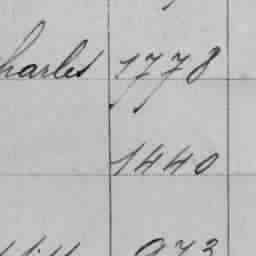 harles 1778
1440
973